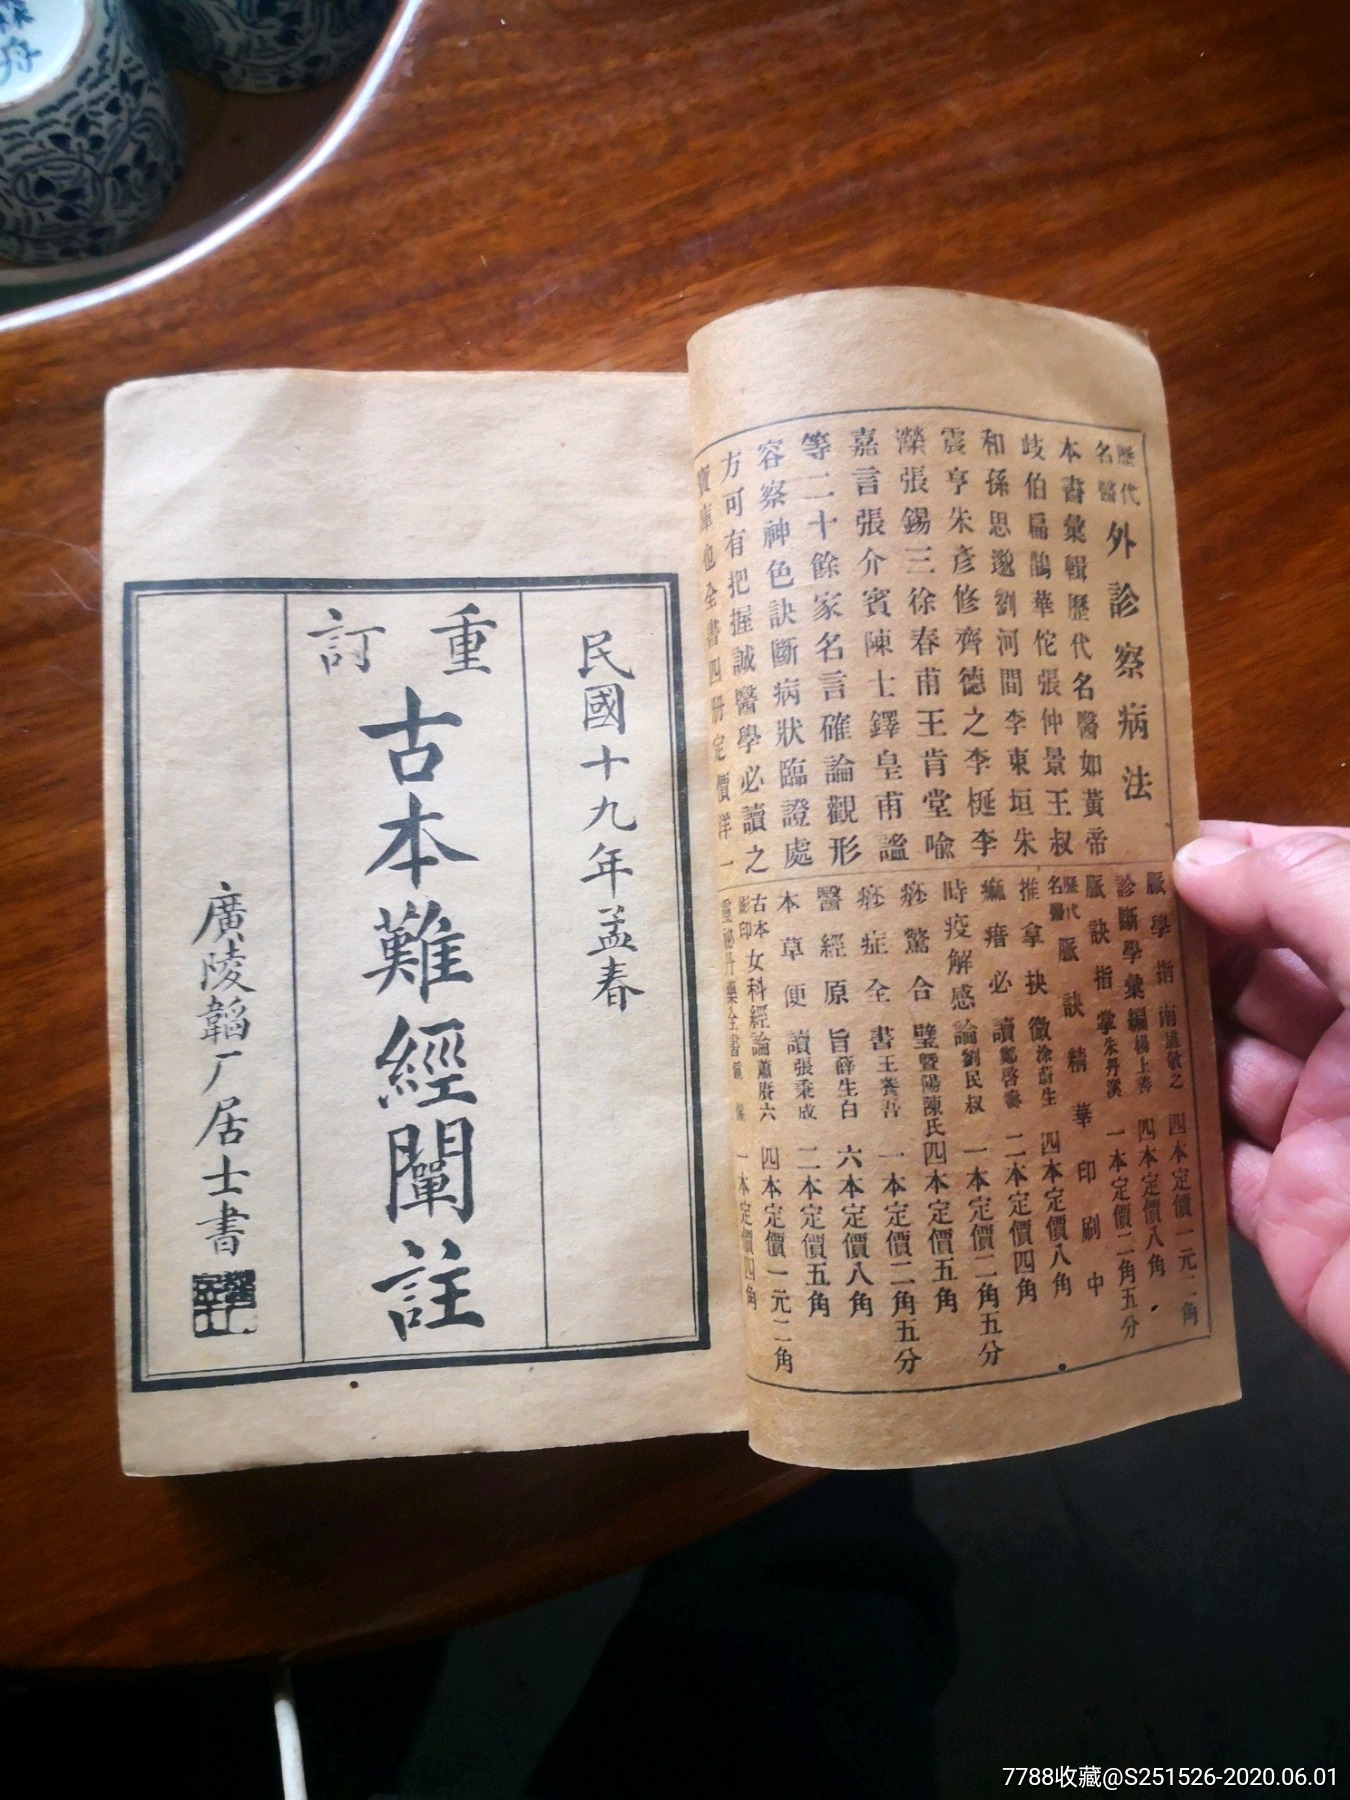 歷代名醫外診察病法
本書彙輯歷代名醫如黃帝
歧伯扁鵲華佗張仲景王叔
和孫思邈劉河間李東垣朱
震亨朱彥修齊德之李梴李
濼張錫三徐春甫王肯堂喻
嘉言張介賓陳士鐸皇甫謐
等二十餘家名言確論觀形
容察神色訣斷病狀臨證處
方可有把握誠醫學必讀之
寶庫也全書四册定價洋一
脈學指南盧敬之 四本定價一元二角
診斷學彙編楊上善 四本定價八角
脈訣指掌朱丹溪 一本定價二角五分
歷代名醫脈訣精華 印刷中
推拿抉微涂蔚生 四本定價八角
痲瘄必讀鄭啓壽 二本定價四角
時疫解感論劉民叔 一本定價二角五分
痧驚合璧暨陽陳氏 四本定價五角
痧症全書王養吾 一本定價二角五分
醫經原旨薛生白 六本定價八角
本草便讀張秉成 二本定價五角
古本影印女科經論蕭賡六 四本定價一元二角
一本定價四角
民國十九年孟春
重訂
古本難經闡註
廣陵韜厂居士書
7788收藏@S251526-2020.06.01